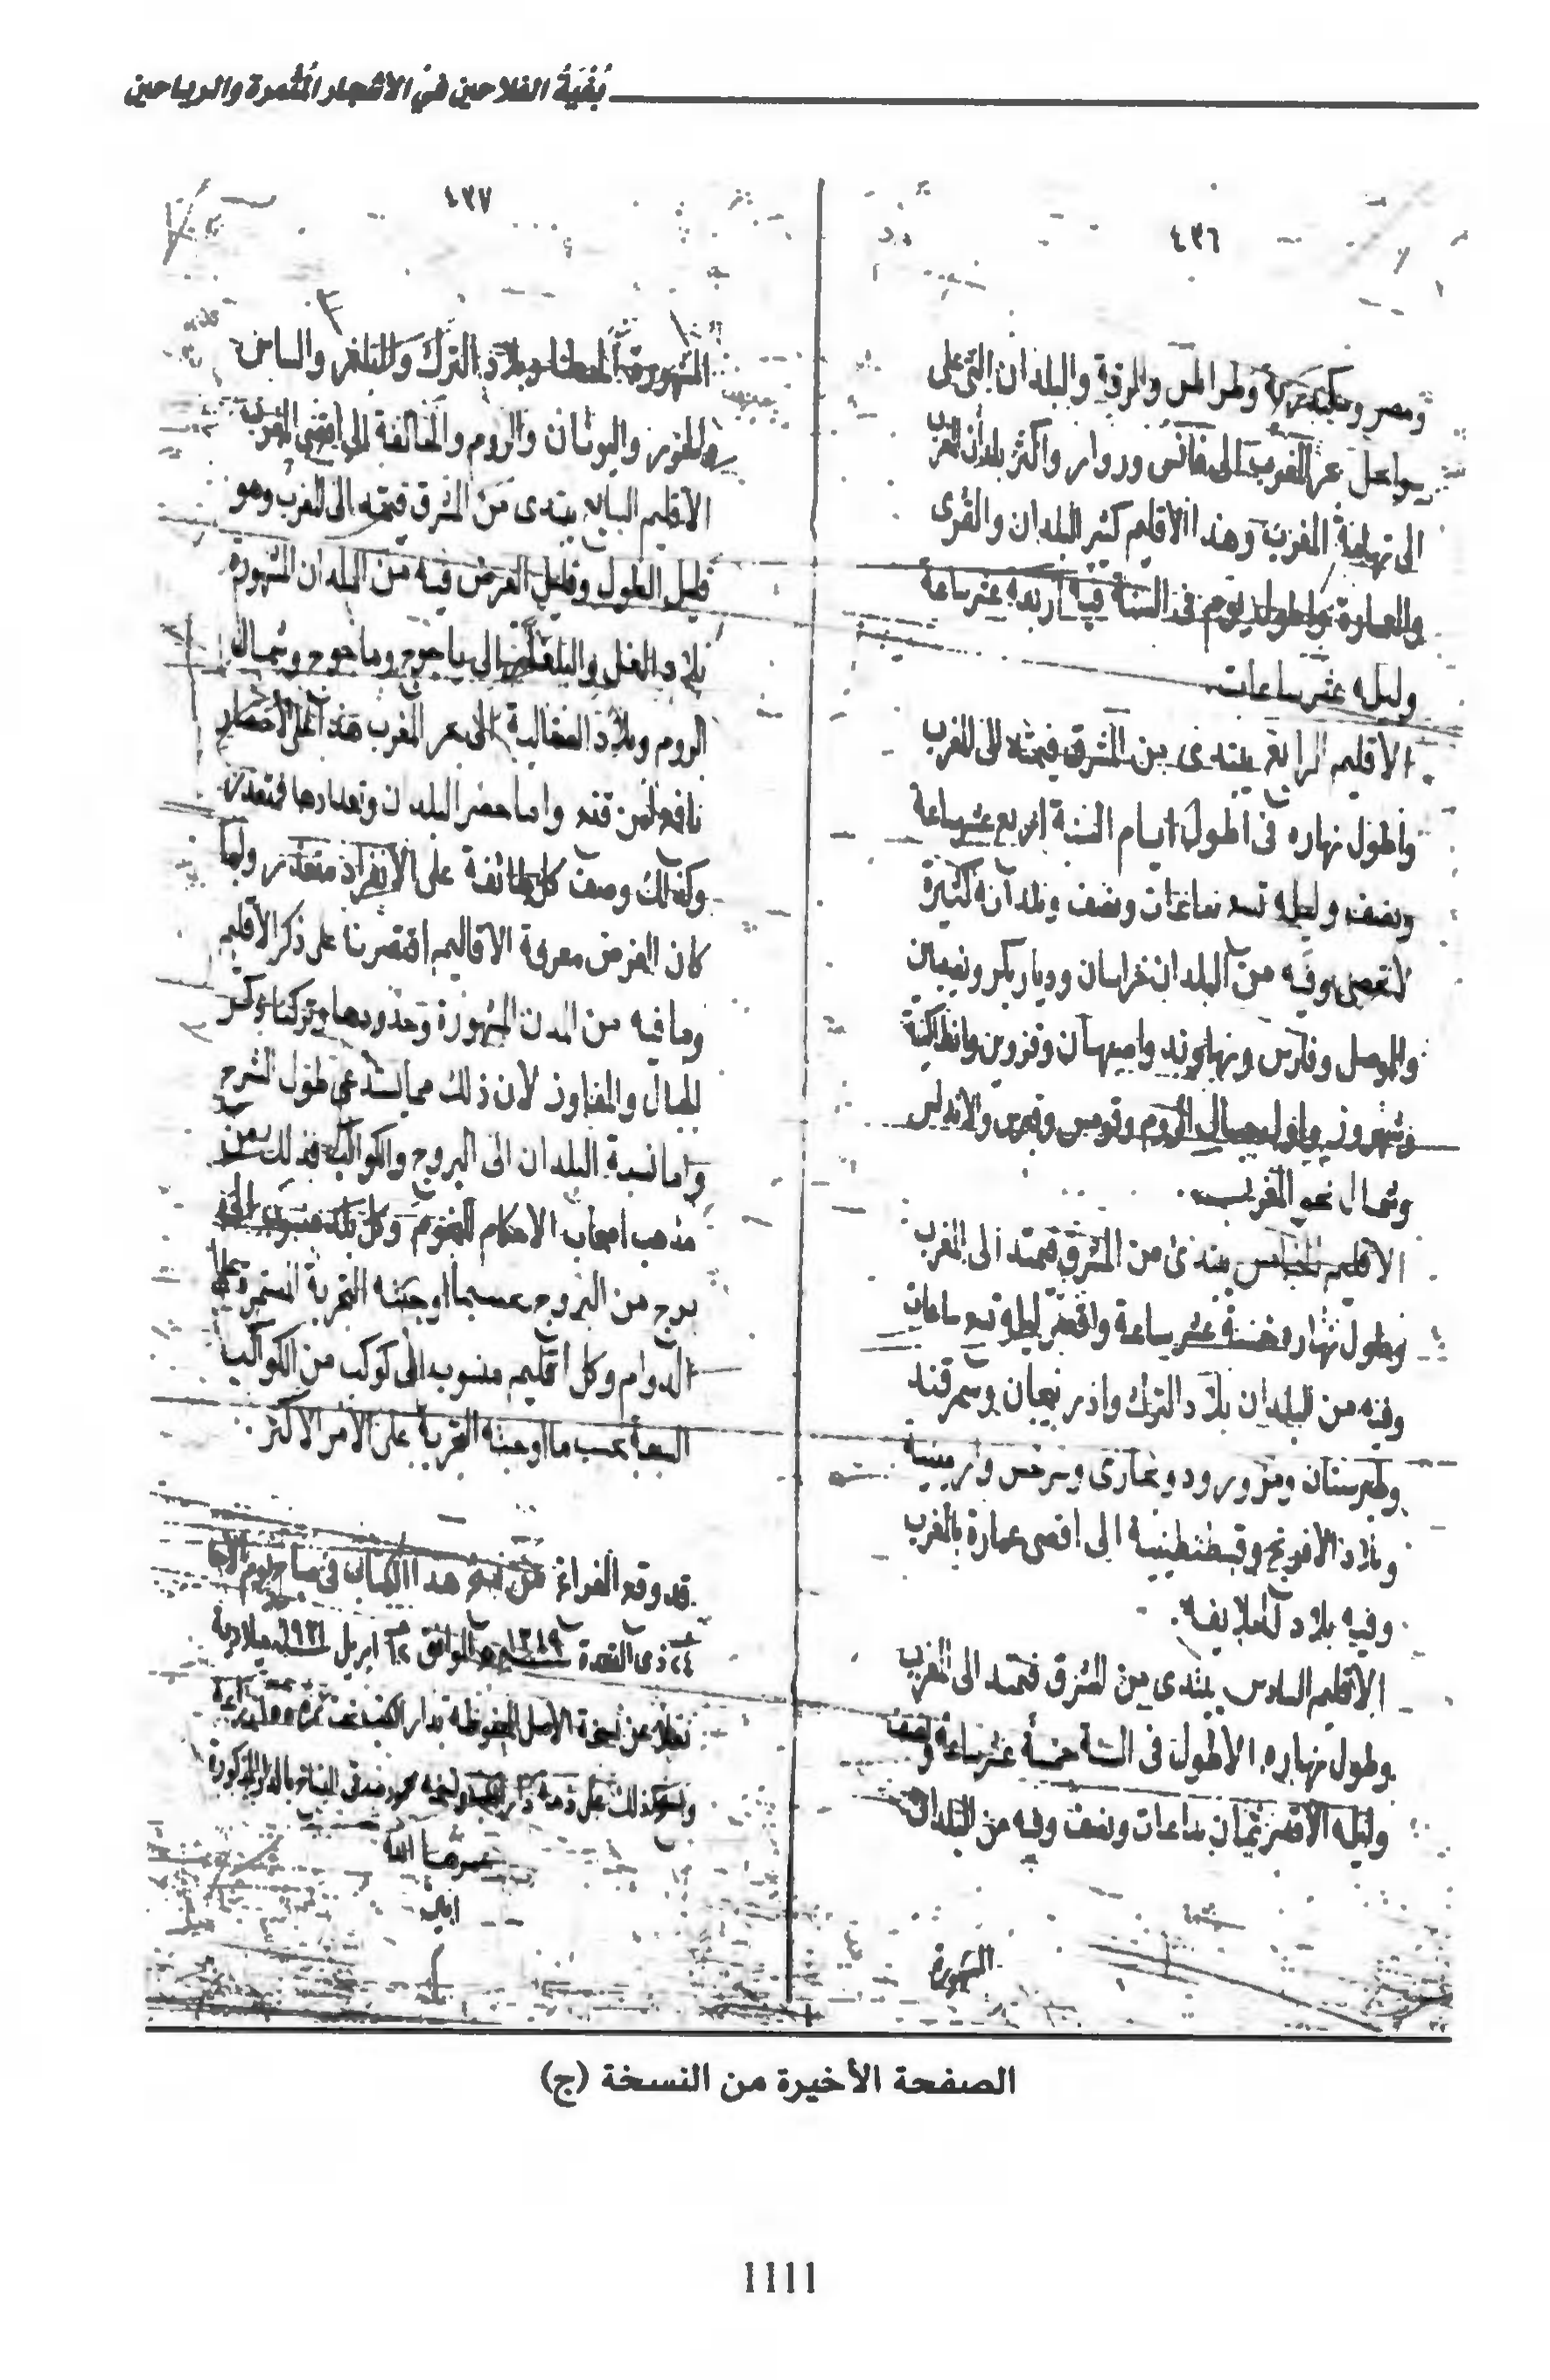 بُغْيَةُ الفلاحين في الأشجار المُثمرة والرياحين
٤٣٦
ومصر وسكندرية وطرابلس والرقة والبلدان التي على
سواحل بحر المغرب الى فاس واكثر بلدان المغرب
الى تهامة المغرب وهذا الاقليم كثير البلدان والقرى
والعمارة واطول يوم فى السنة فيه اربعة عشر ساعة
وليله عشر ساعات.
الاقليم الرابع يبتدى من المشرق فيمتد الى المغرب
واطول نهاره فى اطول ايام السنة اربع عشر ساعة
ونصف وليله تسع ساعات ونصف وبلدانه كثيرة
لا تحصى وفيه من البلدان خراسان وديار بكر ونصيبين
والموصل وفارس ونهاوند واصبهان وقزوين وانطاكية
جبال الروم وقومس وقبرس والاندلس
وشمال نحو المغرب.
الاقليم الخامس يبتدئ من المشرق فيمتد الى المغرب
وطول نهاره خمسة عشر ساعة واقصر ليله تسع ساعات
وفيه من البلدان بلاد الترك واذربيجان وسمرقند
وطبرستان ومرو ورود وبخارى وسرخس وارمينية
وبلاد الافرنج وقسطنطينية الى اقصى عمارة بالمغرب
وفيه بلاد
الاقليم السادس يبتدى من المشرق فيمتد الى المغرب
وطول نهاره الاطول فى السنة خمسة عشر ساعة ونصف
وليله الاقصر ثمان ساعات ونصف وفيه من البلدان
المشهورة
٤٣٧
المشهورة وبلاد الترك والبلغر
والخزر واليونان والروم والى اقصى المغرب
الاقليم السابع يبتدى من المشرق فيمتد الى المغرب وهو
قليل الطول وقليل العرض فيه من البلدان المشهورة
بلاد الى ياجوج وماجوج وشمال
الروم وبلاد الصقالبة الى بحر المغرب هذا على الاختصار
واما حصر البلدان وتعدادها فمتعذر
وكذلك وصف كل طائفة على الانفراد متعذر ولما
كان الغرض معرفة الاقاليم اقتصرنا على ذكر الاقليم
وما فيه من المدن المشهورة وحدودها وتركنا ذكر
الجبال والمفاوز لان ذلك مما يستدعى طول الشرح
واما نسبة البلدان الى البروج والكواكب فذلك من
مذهب اصحاب الاحكام النجوم وكل بلد منسوب الى
برج من البروج حسبما اوجبته التجربة المستمرة على
الدوام وكل اقليم منسوب الى كوكب من الكواكب
السبعة بحسب ما اوجبته التجربة على الامر الاكثر.
قد وقع الفراغ من نسخ هذا الكتاب فى صباح يوم
٢٤ ذى القعدة الموافق ابريل ميلادية
نقلا عن نسخة الاصل المحفوظة بدار الكتب تحت نمرة زراعة
الصفحة الأخيرة من النسخة (ج)
١١١١